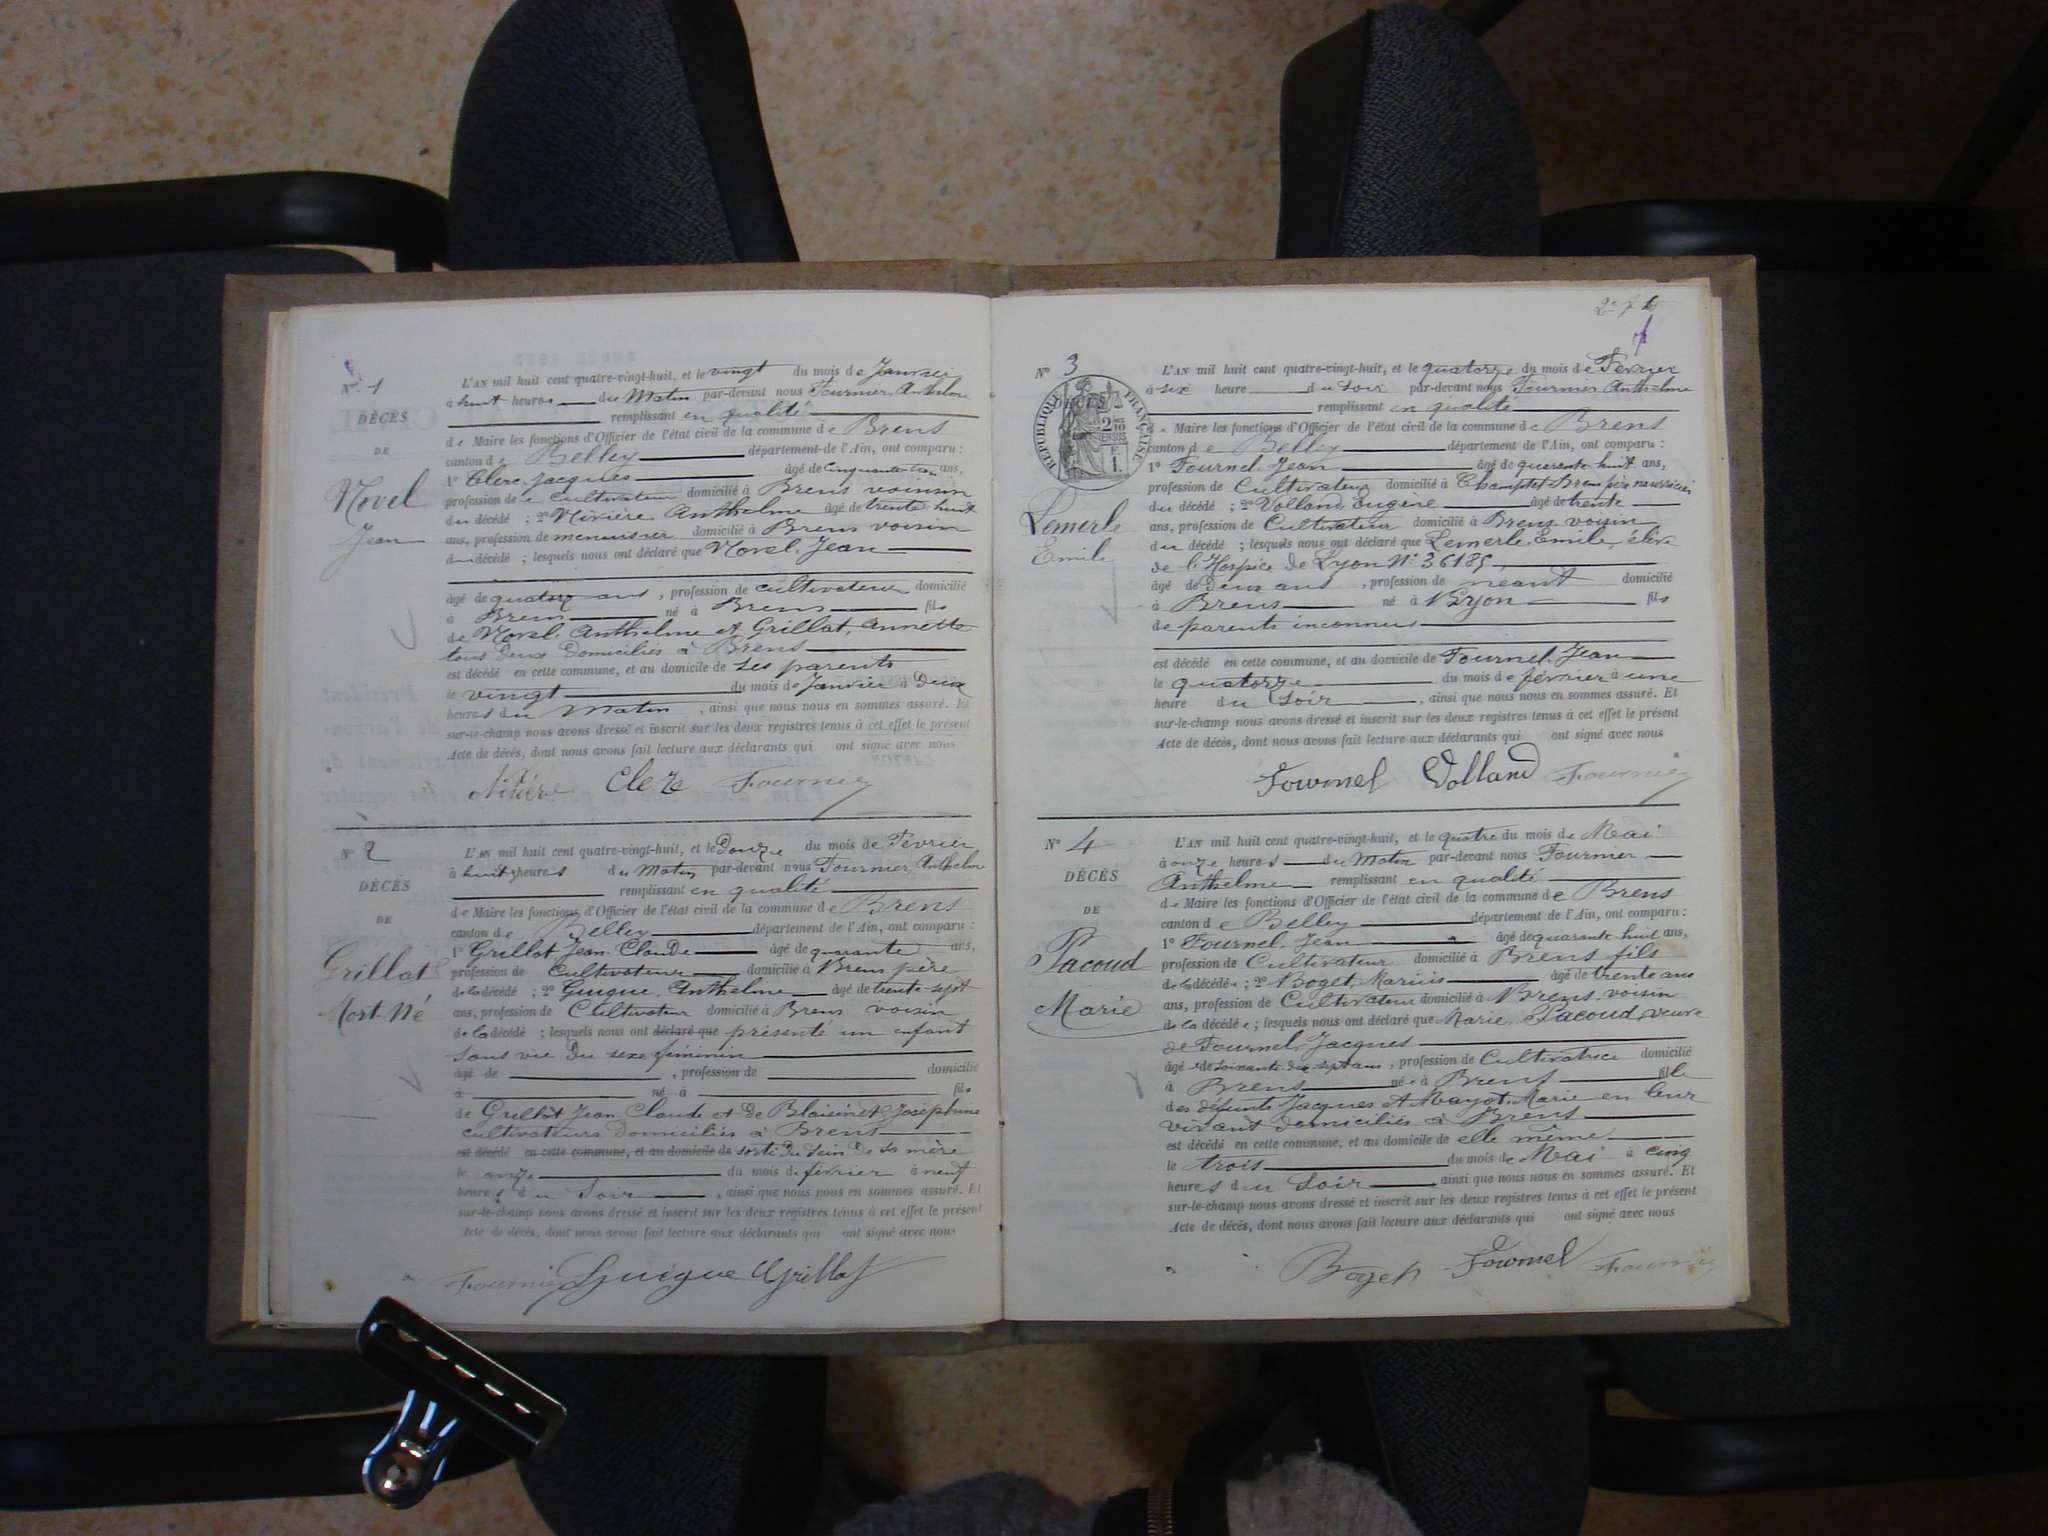 N° 1
DÉCÈS
DE
Novel
Jean
L'AN mil huit cent quatre-vingt-huit, et le vingt du mois de Janvier
à huit heures du Matin par-devant nous Fournier, Anthelme
remplissant en qualité
de Maire les fonctions d'Officier de l'état civil de la commune de Brens
canton de Belley département de l'Ain, ont comparu :
1° Clerc Jacques âgé de Cinquante ans,
profession de Cultivateur domicilié à Brens voisin
du décédé ; 2° Nivière Anthelme âgé de trente huit
ans, profession de menuisier domicilié à Brens voisin
du décédé ; lesquels nous ont déclaré que Novel Jean
âgé de quatorz ans, profession de cultivateur domicilié
à Brens né à Brens fils
de Novel Anthelme et Grillat, Annette
tous deux domiciliés à Brens
est décédé en cette commune, et au domicile de ses parents
le vingt du mois de Janvier à Deux
heures du matin, ainsi que nous nous en sommes assuré. Et
sur-le-champ nous avons dressé et inscrit sur les deux registres tenus à cet effet le présent
Acte de décès, dont nous avons fait lecture aux déclarants qui ont signé avec nous
Nivière Clerc Fournier
N° 2
DÉCÈS
DE
Grillat
Mort Né
L'AN mil huit cent quatre-vingt-huit, et le Douze du mois de Février
à huit heures du Matin par-devant nous Fournier, Anthelme
remplissant en qualité
de Maire les fonctions d'Officier de l'état civil de la commune de Brens
canton de Belley département de l'Ain, ont comparu :
1° Grillat Jean Claude âgé de quarante ans,
profession de Cultivateur domicilié à Brens père
de la décédé ; 2° Guigue, Anthelme âgé de trente-sept
ans, profession de Cultivateur domicilié à Brens voisin
de la décédé ; lesquels nous ont déclaré que présenté un enfant
sans vie du sexe féminin
âgé de , profession de domicilié
à né à fils
de Grillat Jean Claude et de Joséphine
cultivateurs domiciliés à Brens
est décédé en cette commune, et au domicile de sorti du sein de sa mère
le onze du mois de février à neuf
heures du Soir, ainsi que nous nous en sommes assuré. Et
sur-le-champ nous avons dressé et inscrit sur les deux registres tenus à cet effet le présent
Acte de décès, dont nous avons fait lecture aux déclarants qui ont signé avec nous
Fournier Guigue Grillat
N° 3
RÉPUBLIQUE FRANÇAISE
Lemerle
Emile
L'AN mil huit cent quatre-vingt-huit, et le quatorze du mois de Fevrier
à six heure du soir par-devant nous Fournier Anthelme
remplissant en qualité
de Maire les fonctions d'Officier de l'état civil de la commune de Brens
canton de Belley département de l'Ain, ont comparu :
1° Fournel Jean âgé de quarante huit ans,
profession de Cultivateur domicilié à Brens père nourricier
du décédé ; 2° Volland Eugène âgé de trente
ans, profession de Cultivateur domicilié à Brens voisin
du décédé ; lesquels nous ont déclaré que Lemerle, Emile, élève
de l'Hospice de Lyon N° 36185,
âgé de Deux ans, profession de néant domicilié
à Brens né à Lyon fils
de parents inconnus
est décédé en cette commune, et au domicile de Fournel, Jean
le quatorze du mois de février à une
heure du Soir, ainsi que nous nous en sommes assuré. Et
sur-le-champ nous avons dressé et inscrit sur les deux registres tenus à cet effet le présent
Acte de décès, dont nous avons fait lecture aux déclarants qui ont signé avec nous
Fournel Volland Fournier
N° 4
DÉCÈS
DE
Pacoud
Marie
L'AN mil huit cent quatre-vingt-huit, et le quatre du mois de Mai
à onze heures du Matin par-devant nous Fournier
Anthelme remplissant en qualité
de Maire les fonctions d'Officier de l'état civil de la commune de Brens
canton de Belley département de l'Ain, ont comparu :
1° Fournel, Jean âgé de quarante huit ans,
profession de Cultivateur domicilié à Brens fils
de la décédée ; 2° Boget, Marius âgé de trente ans
ans, profession de Cultivateur domicilié à Brens, voisin
de la décédée ; lesquels nous ont déclaré que Marie Pacoud, veuve
de Fournel, Jacques
âgée de soixante dix sept ans, profession de Cultivatrice domicilié
à Brens née à Brens fille
des défunts Jacques et Mayot, Marie en leur
vivant domiciliés à Brens
est décédé en cette commune, et au domicile de elle même
le trois du mois de Mai à cinq
heures du Soir ainsi que nous nous en sommes assuré. Et
sur-le-champ nous avons dressé et inscrit sur les deux registres tenus à cet effet le présent
Acte de décès, dont nous avons fait lecture aux déclarants qui ont signé avec nous
Boget Fournel Fournier